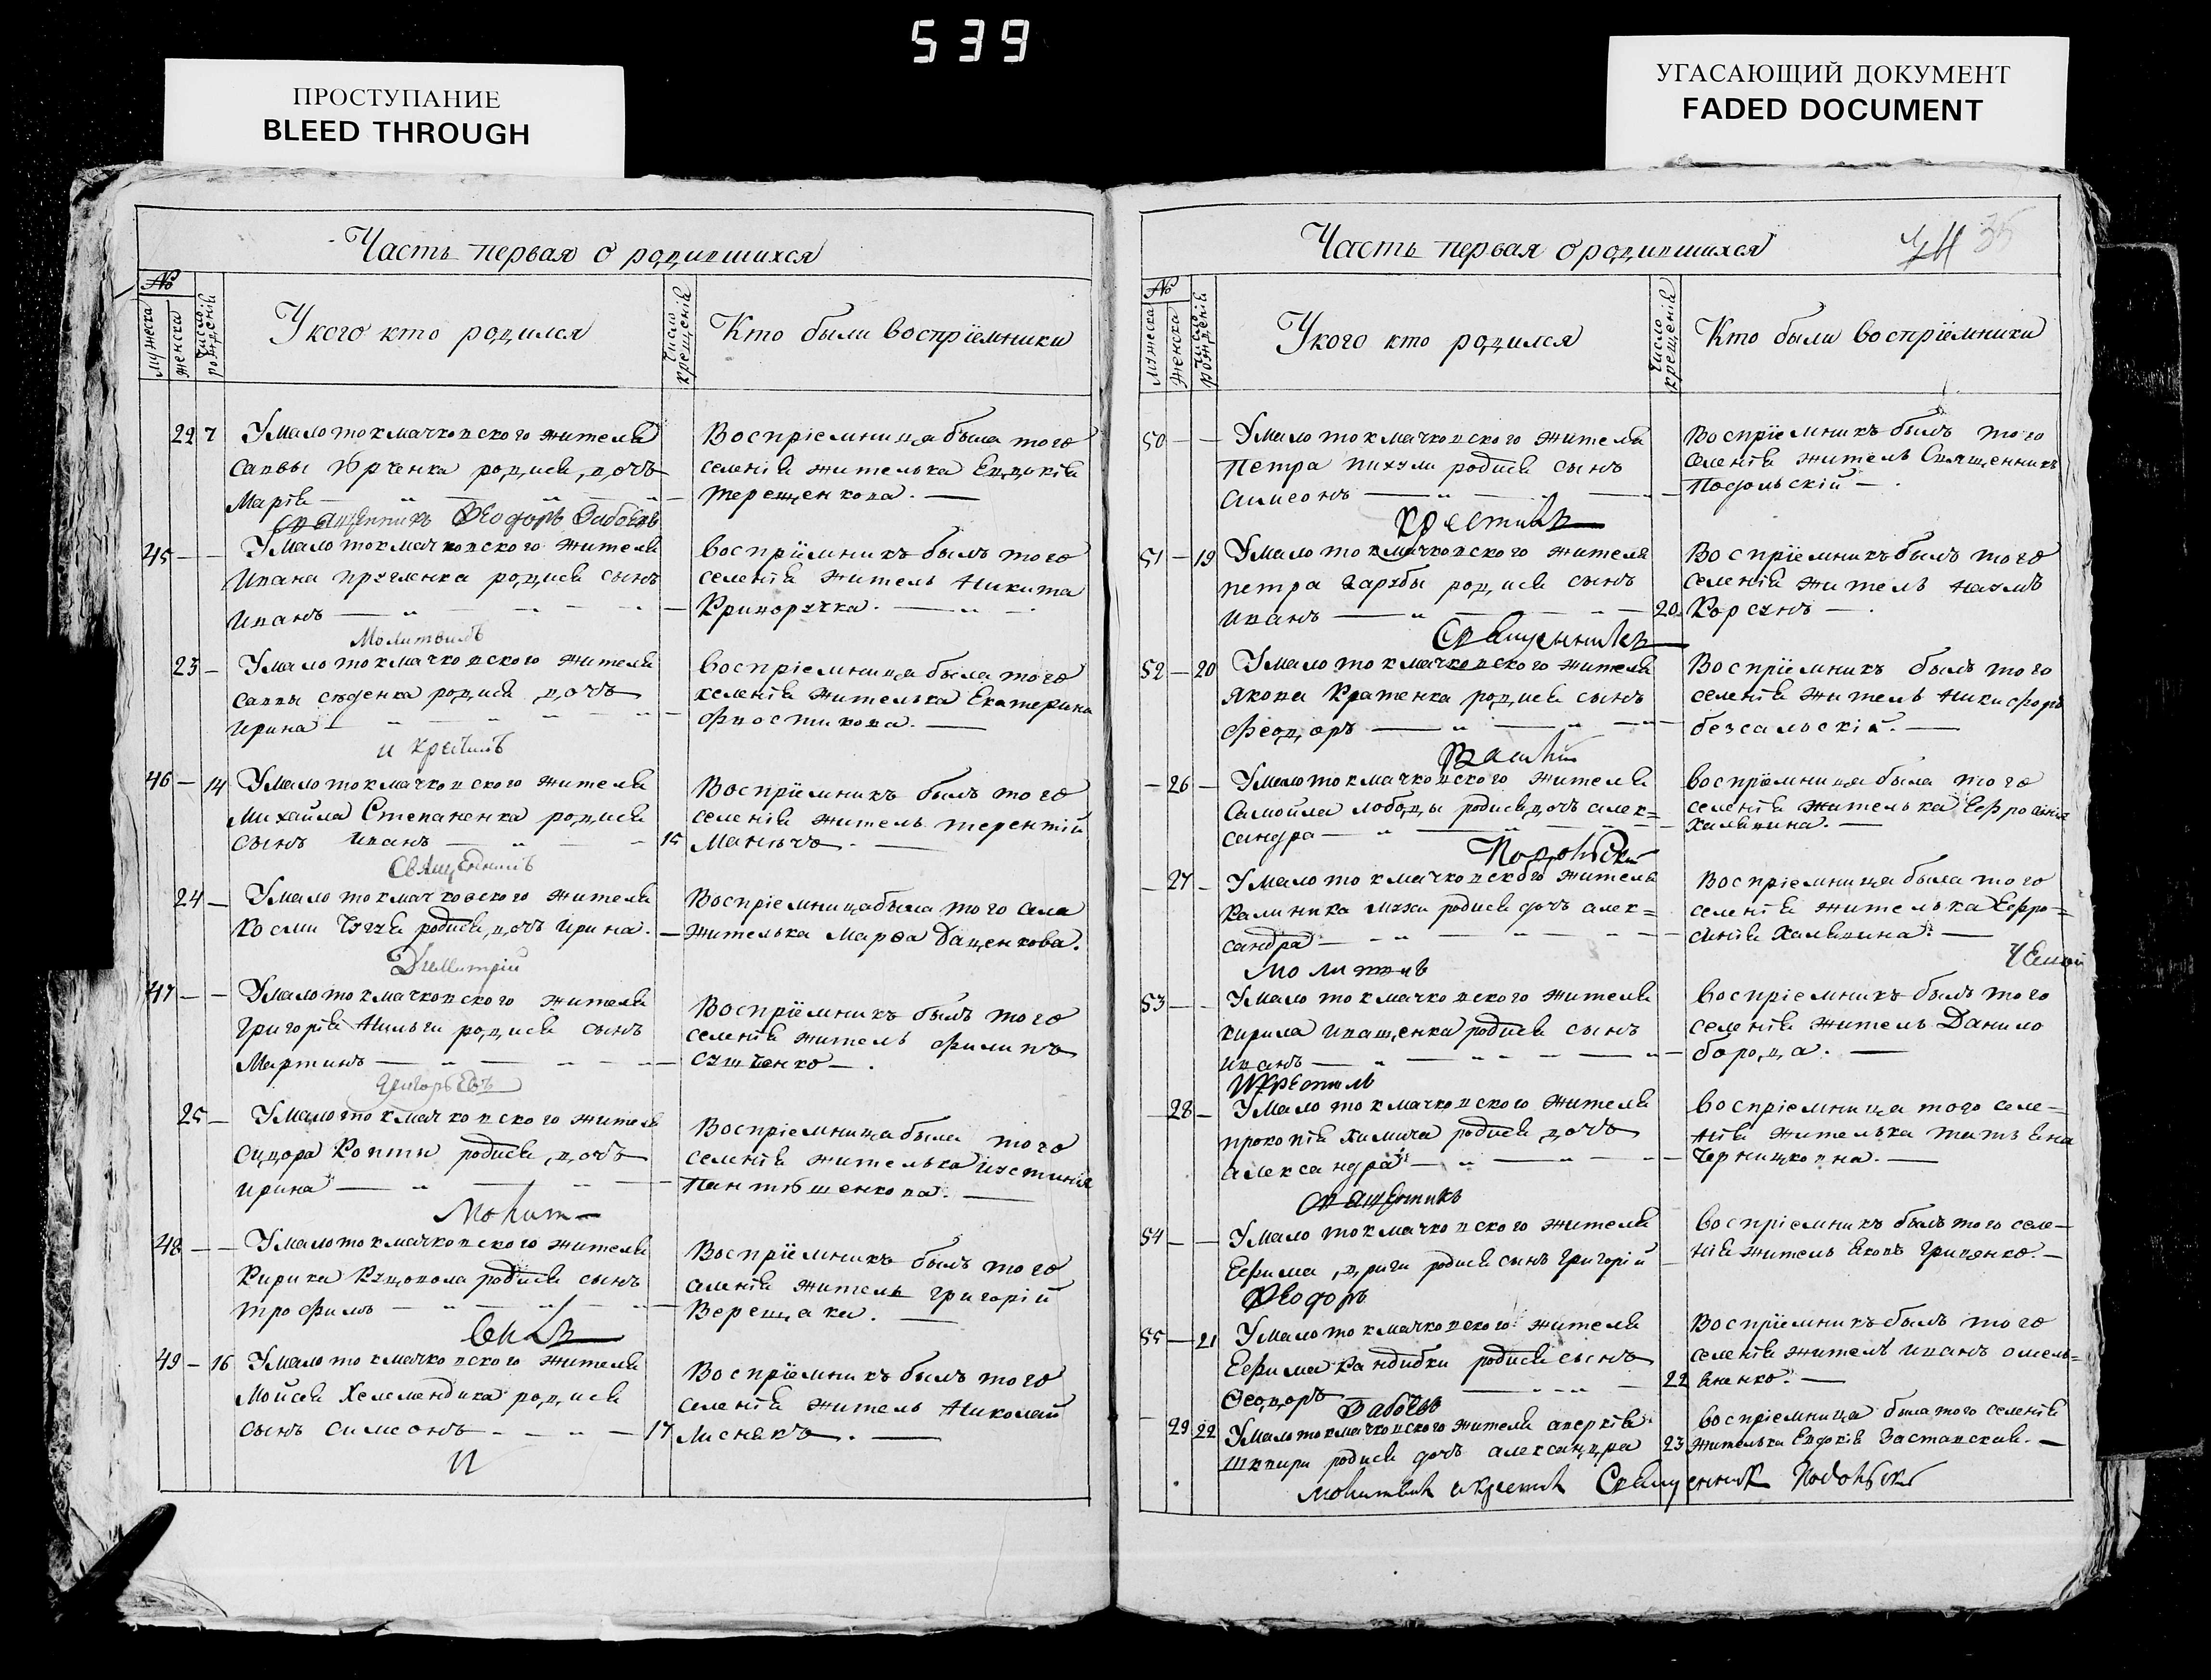 539
ПРОСТУПАНИЕ
BLEED THROUGH
УГАСАЮЩИЙ ДОКУМЕНТ
FADED DOCUMENT
Часть первая о родившихся
№
мужеска
женска
Число рожденія
У кого кто родился
Число крещенія
Кто были воспріемники
22 7 У малотокмачковского жителя
Саввы Юрченка родися дочь
Марія
Воспріемница была того
селенія жителька Евдокія
Терещенкова.
Священникъ Феодоръ Бабачевъ
45 У малотокмачковского жителя
Ивана Пругленка родися сынъ
Иванъ
воспріемникъ былъ того
селенія житель Никита
Криворучка.
Молитвилъ
23 У малотокмачковского жителя
Саввы родися дочь
Ирина
воспріемница была того
селенія жителька Екатерина
Фностикова.
и крестилъ
46 14 У малотокмачковского жителя
Михайла Степаненка родися
сынъ Иванъ 15
Воспріемникъ былъ того
селенія житель Терентій
Священникъ
24 У малотокмачковского жителя
Космы родися дочь Ирина.
Воспріемница была того села
жителька Марѳа Даценкова.
Димитрій
47 У малотокмачковского жителя
Григорія родися сынъ
Мартинъ
Воспріемникъ былъ того
селенія житель Филипъ
Сущенко.
Григорьевъ
25 У малотокмачковского жителя
Сидора Копти родися дочь
Ирина
Воспріемница была того
селенія жителька Іустинія
Пантюшенкова.
Молит
48 У малотокмачковского жителя
Кирика Куцовола родися сынъ
Трофимъ
Воспріемникъ былъ того
селенія житель Григорій
Верещака.
49 16 У малотокмачковского жителя
Мойсея Хелемендика родися
сынъ Симеонъ 17
Воспріемникъ былъ того
селенія житель Николай
Леснякъ.
и
Часть первая о родившихся
35
№
мужеска
женска
Число рожденія
У кого кто родился
Число крещенія
Кто были воспріемники
50 У малотокмачковского жителя
Петра Пихули родися сынъ
Симеонъ
Воспріемникъ былъ того
селенія житель Священникъ
Подольскій
крестилъ
51 19 У малотокмачковского жителя
Петра Гарбы родися сынъ
Иванъ 20
Воспріемникъ былъ того
селенія житель Наумъ
Корсунъ
Священникъ
52 20 У малотокмачковского жителя
Якова Кратенка родися сынъ
Феодоръ
Воспріемникъ былъ того
селенія житель Никифоръ
Безсальскій.
26 У малотокмачковского жителя
Самойла Лободы родися дочь Алек=
сандра
воспріемница была того
селенія жителька Ефросинія
Халявина.
Подольскій
27 У малотокмачковского жителя
Калиника Мухи родися дочь Алек=
сандра
Воспріемница была того
селенія жителька Ефро=
синія Халявина.
Молитвилъ
53 У малотокмачковского жителя
Кирила Иващенка родися сынъ
Иванъ
воспріемникъ былъ того
селенія житель Данило
Борода.
и крестилъ
28 У малотокмачковского жителя
Прокопія Химича родися дочь
Александра
воспріемница того селе=
нія жителька Татіяна
Черницковна.
Священникъ
54 У малотокмачковского жителя
Ефима Дриги родися сынъ Григорій
воспріемникъ былъ того селе=
нія житель Яковъ Грицянко.
Феодоръ
55 21 У малотокмачковского жителя
Ефима Кандибки родися сынъ
Ѳеодоръ 22
Воспріемникъ былъ того
селенія житель Иванъ Омель=
яненко.
Бабачевъ
29 22 У малотокмачковского жителя Аверкія
Шкири родися дочь Александра 23
воспріемница была того селенія
жителька Евдокія Заставская.
Молитвилъ и крестилъ Священникъ Подольскій